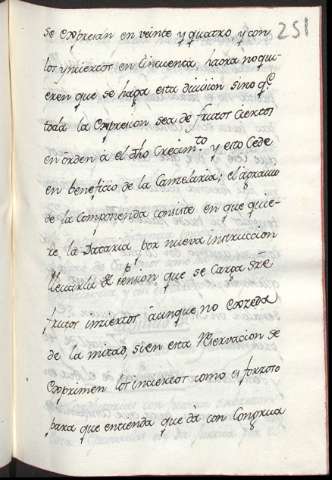 251
se expresan en veinte y quatro, y con
los ynciertos en cincuenta, haora no qui-
eren que se haga esta divicion sino q.e
toda la expresion sea de frutos ciertos
en orden á el dho Cream.to y esto cede
en beneficio de la Cancelaria; el agravio
de la Componenda consiste en que quie-
re la Dataria por nueva instruccion
llevarla p.r pension que se carga sre
frutos inziertos aunque no exzeda
de la mitad, si en esta Reservacion se
exprimen los inciertos como es forzoso
para que entienda que dà con Congrua